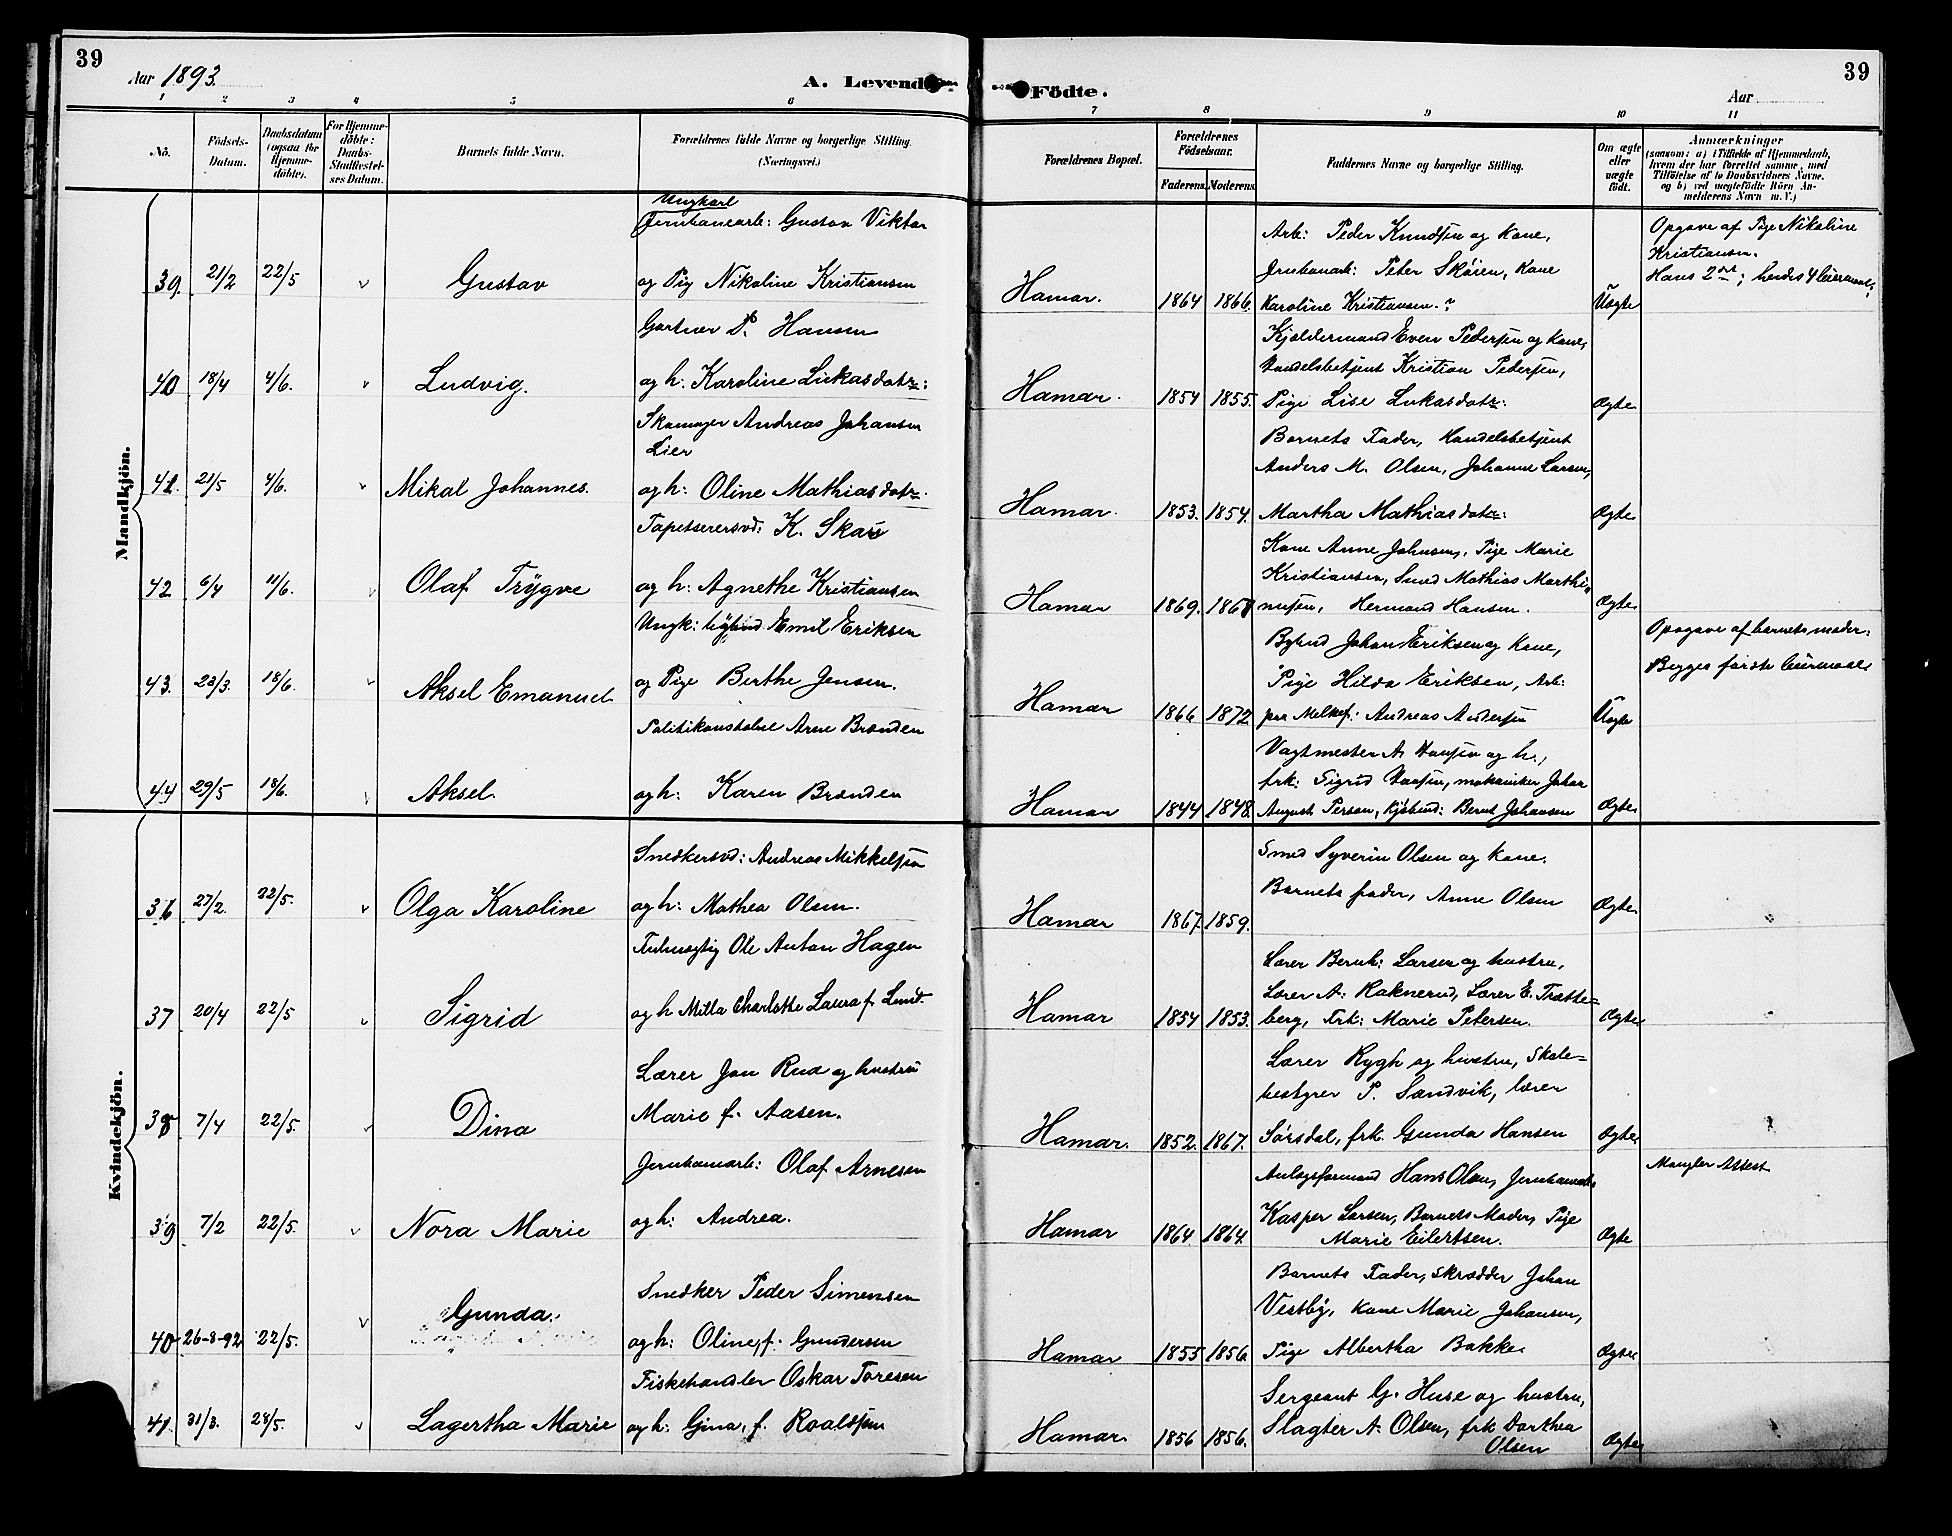 39
Aar 1893.
A. Levende
1 2 3 4 5 6
Nô. Födsels-Datum. Daabsdatum (ogsaa for Hjemme-döbte). For Hjemme-döbte: Daabs-Stadfæstel-ses Datum. Barnets fulde Navn. Forældrenes fulde Navne og borgerlige Stilling. (Næringsvei.)
Mandkjön.
Ungkarl
Jernbanearb: Gustav Viktor
39. 21/2 22/5 v Gustav og Pig Nikoline Kristiansen
Gartner P. Hansen
40 18/4 4/6. v Ludvig. og h: Karoline Lukasdatr:
Skomager Andreas Johansen
Lier
41. 21/5 4/6. v Mikal Johannes. og h: Oline Mathiasdatr.
Tapetserersvd: K. Skau
42 6/4 11/6. v Olaf Trÿgve og h: Agnethe Kristiansen
Ungk: Emil Eriksen
43. 23/3. 18/6. v Aksel Emanuel og Pige Berthe Jensen.
Politikonstabel Arne Brænden
44 29/5 18/6. v Aksel. og h: Karen Brænden
Kvindekjön.
Snedkersvd: Andreas Mikkelsen
36 27/2. 22/5. v Olga Karoline og h: Mathea Olsen.
Fuldmægtig Ole Anton Hagen
37 20/4 22/5 v Sigrid og h Milla Charlotte Laura f. Lund.
Lærer Jon Rud og hustru
38 7/4 22/5. v Dina Marie f. Aasen.
Jernbanearb: Olaf Arnesen
39 7/2 22/5. v Nora Marie og h: Andrea.
Snedker Peder Simensen
40 26-8-92 22/5. v Gunda. og h: Oline, f. Gundersen
Fiskehandler Oskar Toresen
41. 31/3. 28/5. v Lagertha Marie og h: Gina, f. Roaldsen
39
Födte.
Aar
7 8 9 10 11
Forældrenes Bopæl. Forældrenes Födselsaar. Faderens. Moderens. Faddernes Navne og borgerlige Stilling. Om ægte eller uægte födt. Anmærkninger (saasom: a) i Tilfælde af Hjemmedaab, hvem der har forrettet samme, med Tilföielse af to Daabsvidners Navne. og b) ved uægtefödte Börn Anmelderens Navn m.V.)
Arb: Peder Knudsen og Kone, Opgave af Pige Nikoline
Jernbanarb: Peter Skøien, Kone Kristiansen.
Hamar. 1864 1866. Karoline Kristiansen. Uægte Hans 2det; hendes 4 leiermaal;
Kjældermand Even Pedersen og Kone,
Handelsbetjent Kristian Pedersen,
Hamar. 1854 1855. Pige Lise Lukasdatr: Ægte
Barnets Fader, Handelsbetjent
Anders M. Olsen, Johanne Larsen,
Hamar. 1853. 1854. Martha Mathiasdatr: Ægte
Kone Anne Johnsen, Pige Marie
Kristiansen, Smed Mathias Marthi-
Hamar 1869. nusen, Hermand Hansen. Ægte
Bybud Johan Eriksen og Kone, Opgave af barnets moder.
Pige Hilda Eriksen, Arb: Begges første leiermaal
Hamar 1866 1872 paa Melkef: Andreas Andersen Uægte
Vagtmester A. Hansen og h.,
frk: Sigrid Hansen, mekaniker Johan
Hamar 1844 1848. August Person, Bernt Johansen Ægte
Smed Syverin Olsen og Kone.
Hamar 1867. 1859. Barnets fader, Anne Olsen Ægte
Lærer Bernh: Larsen og hustru,
Lærer A. Raknerud, Lærer E. Trætte-
Hamar 1854 1853. berg, Frk: Marie Petersen. Ægte
Lærer Rygh og hustru, Skole-
bestyrer P. Sandvik, lærer
Hamar. 1852. 1867. Sørsdal, frk. Gunda Hansen Ægte
Anlægsformand Hans Olsen, Jernbanearb. Mangler Attest
Kasper Larsen, Barnets Moder, Pige
Hamar 1864 1864. Marie Eilertsen. Ægte
Barnets Fader, Skrædder Johan
Vestby, Kone Marie Johansen,
Hamar 1855 1856 Pige Albertha Bakke Ægte
Sergeant G. Huse og hustru,
Hamar 1856 1856. Slagter A. Olsen, frk Dorthea
Olsen Ægte